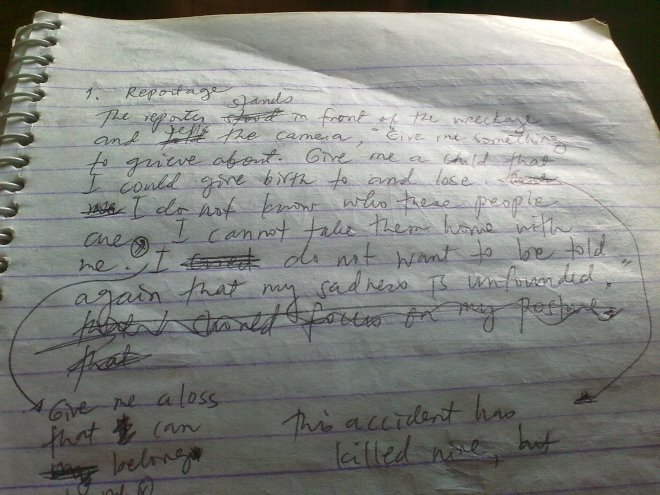 1. Reportage
stands
The reporter stood in front of the wreckage
and tells the camera, "Give me something
to grieve about. Give me a child that
I could give birth to and lose.
I do not know who these people
are I cannot take them home with
me. I do not want to be told
again that my sadness is unfounded,"
that I should focus on my posture
that
Give me a loss
that I can
belong
This accident has
killed nine, but